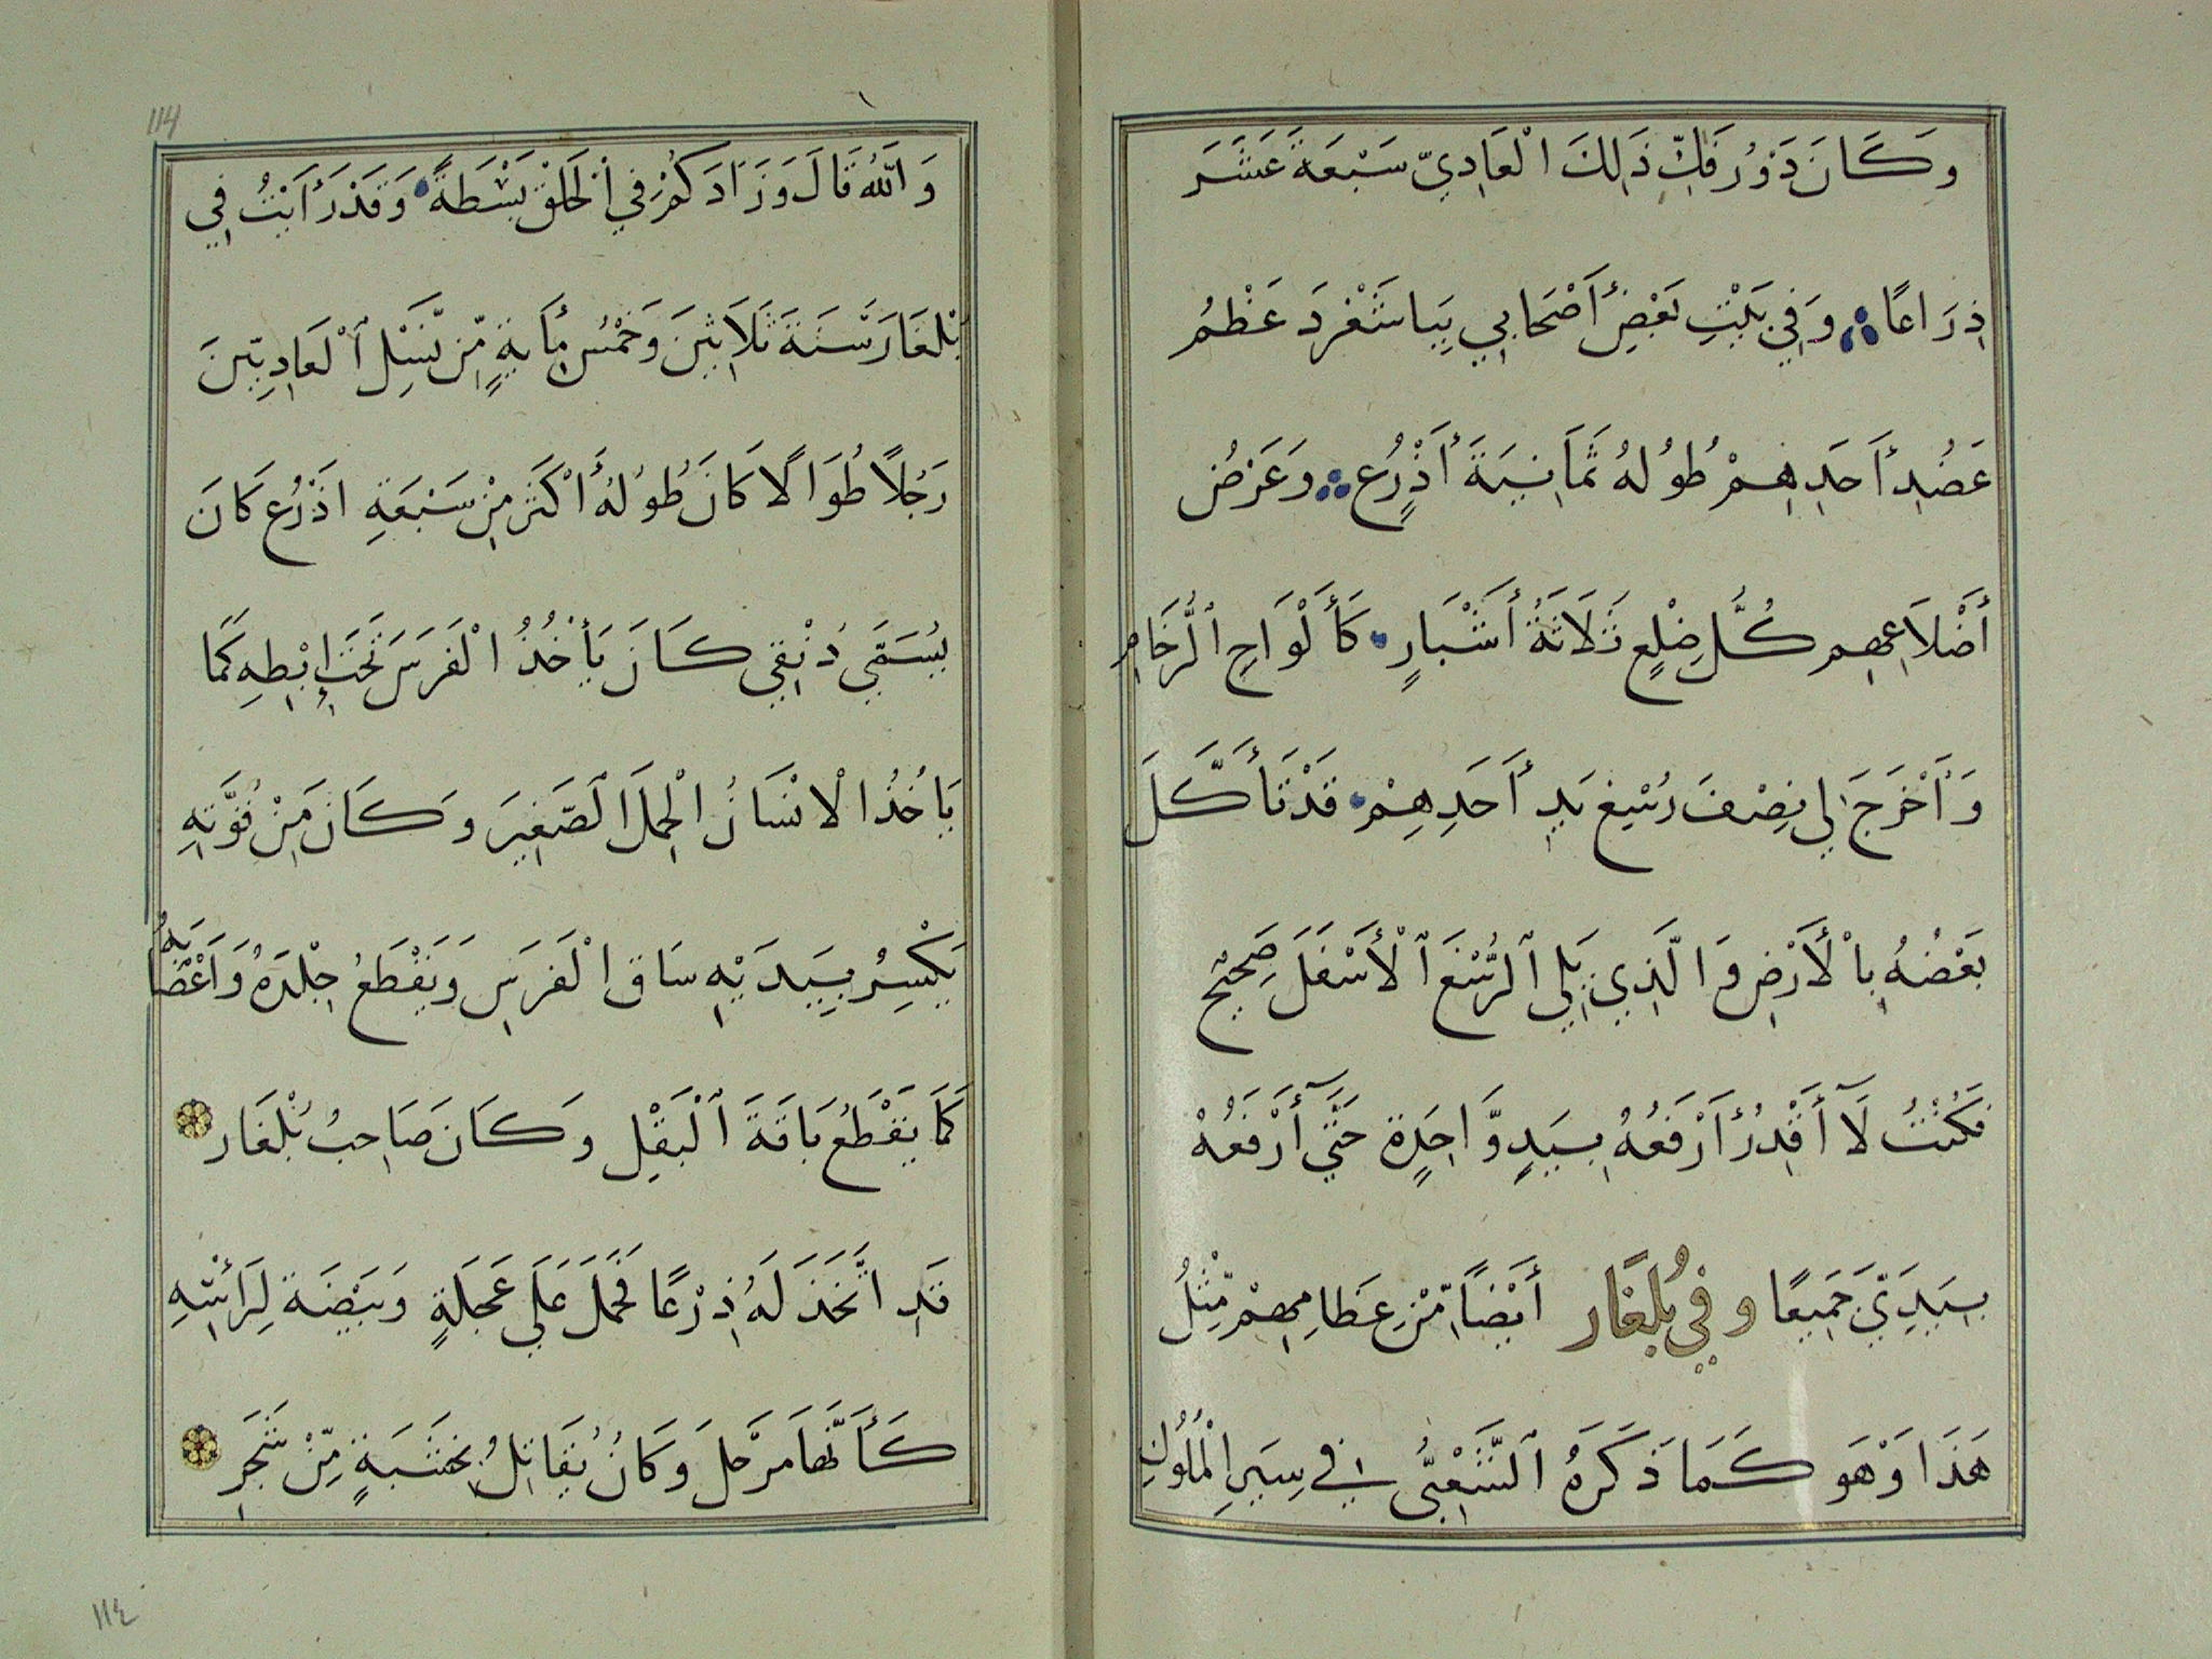 وَكَانَ دَوْرُ فَكِّ ذَلِكَ الْعَادِيّ سَبْعَةَ عَشَرَ
ذِرَاعًا وَفِي بَيْتِ بَعْضِ أَصْحَابِي بِبَاشْغَرْدَ عَظْمُ
عَضُدِ أَحَدِهِمْ طُولُهُ ثَمَانِيَةَ أَذْرُعٍ وَعَرْضُ
أَضْلَاعِهِم كُلُّ ضِلْعٍ ثَلَاثَةُ أَشْبَارٍ كَأَلْوَاحِ ٱلرُّخَامِ
وَأَخْرَجَ لِي نِصْفَ رُسْغِ يَدِ أَحَدِهِمْ قَدْ تَأَكَّلَ
بَعْضُهُ بِالْأَرْضِ وَالَّذِي يَلِي ٱلرُّسْغَ ٱلْأَسْفَلَ صَحِيْح
فَكُنْتُ لَآ أَقْدِرُ أَرْفَعُهُ بِيَدٍ وَّاحِدَةٍ حَتَّى أَرْفَعُهُ
بِيَدِيَّ جَمِيعًا وفي بُلغَار أَيْضًا مِّنْ عِظَامِهِمْ مِّثْلُ
هَذَا وَهْوَ كَمَا ذَكَرَهُ ٱلشَّعْبِيُّ فِي سِيَرِ الْمُلُوكِ
114
وَاللَّهُ قَالَ وَزَادَكُمْ فِي الْخَلْقِ بَسْطَةً وَقَدْ رَأَيْتُ فِي
بُلْغَارَ سَنَةَ ثَلَاثِينَ وَخَمْسِ مِأَيَةٍ مِّن نَّسْلِ ٱلْعَادِيِّينَ
رَجُلاً طُوَالًا كَانَ طُولُهُ أَكْثَرَ مِنْ سَبْعَةِ اذْرُعٍ كَانَ
يُسَمَّى دُنْقِي كَانَ يَأْخُذُ الْفَرَسَ تَحْتَ إِبْطِهِ كَمَا
يَاخُذُ الْانْسَانُ الْحَمَلَ الصَّغِيرَ وَكَانَ مِنْ قُوَّتِهِ
يَكْسِرُ بِيَدَيْهِ سَاقَ الْفَرَسِ وَيَقْطَعُ جِلْدَهُ وَأَعْضَآءَهُ
كَمَا يَقْطَعُ بَاقَةَ ٱلْبَقْلِ وَكَانَ صَاحِبُ بُلْغَار
قَدِ اتَّخَذَ لَهُ ذِرْعًا فَحُمِلَ عَلَى عَجَلَةٍ وَبَيْضَةً لِرَأْسِهِ
كَأَنَّهَا مَرْجَلَ وَكَانَ يُقَاتِلُ بِخَشَبَةٍ مِّنْ شَجَرٍ
١١٤